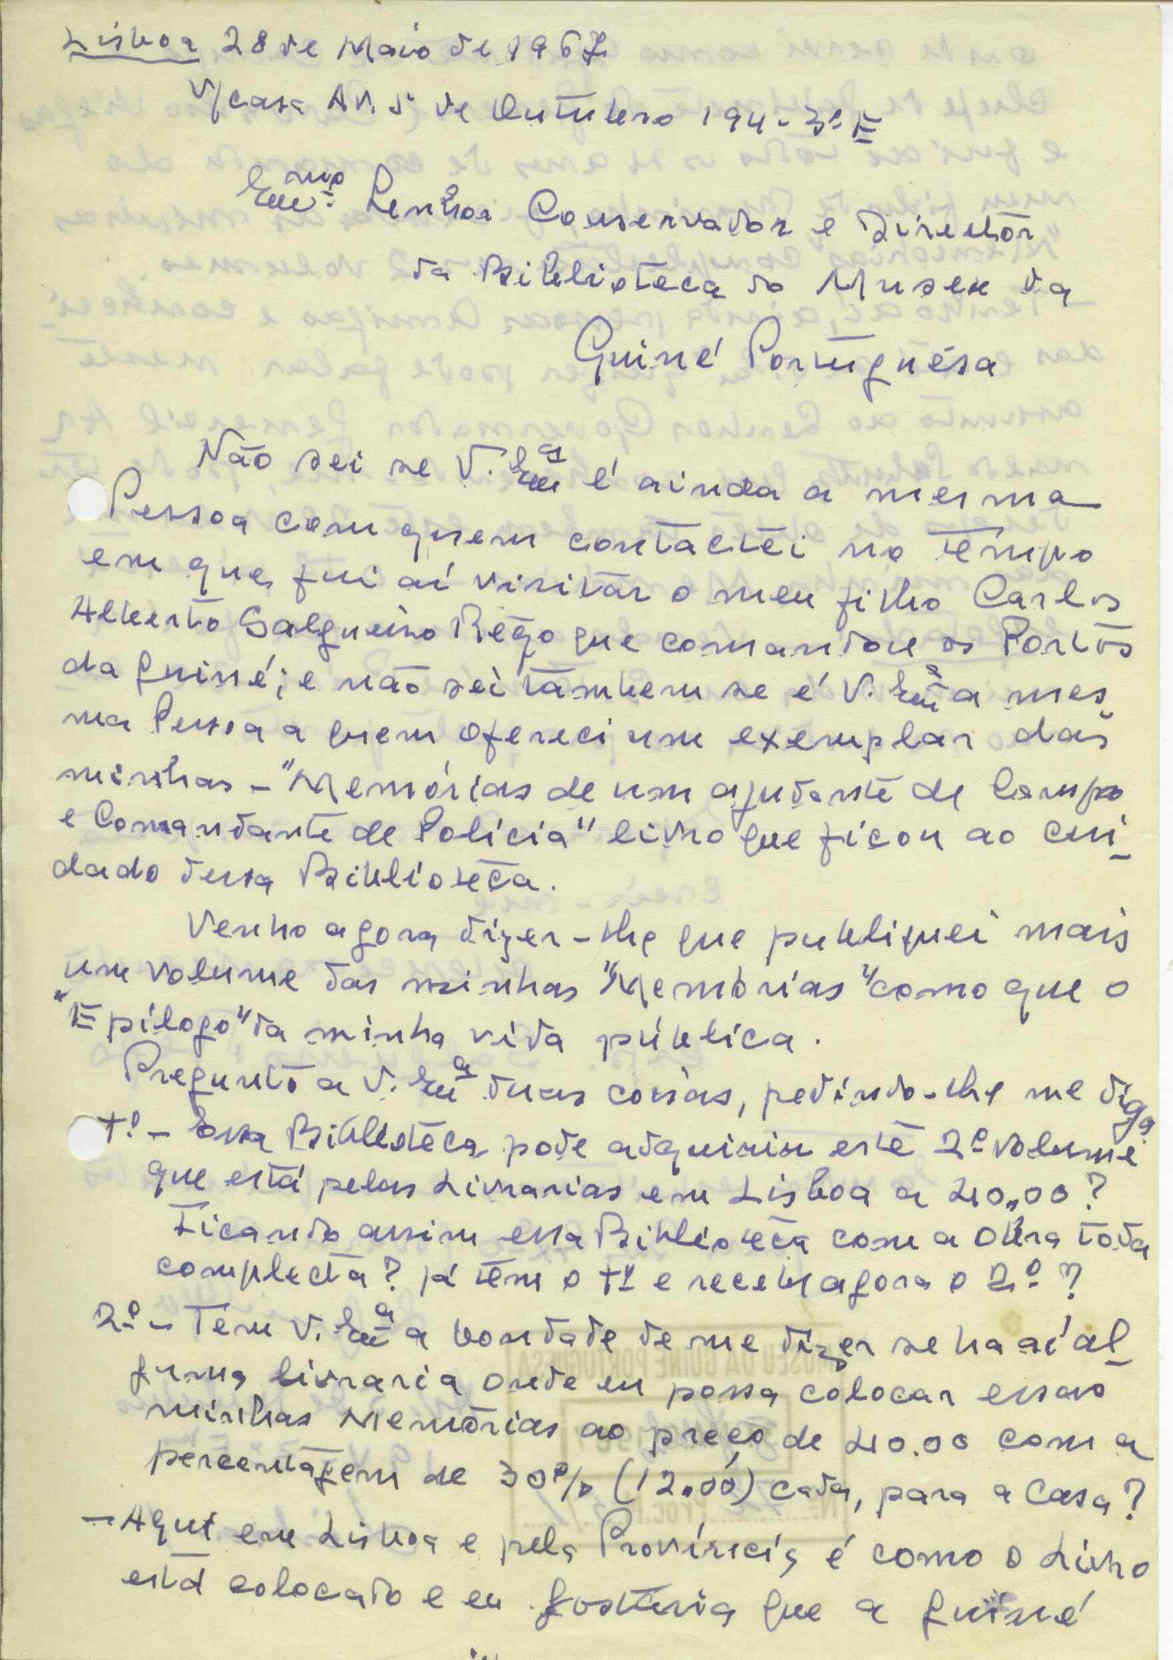 Lisboa 28 de Maio de 1967
V/casa Av. 5 de Outubro 194-3º E
Exmo. Senhor Conservador e Director
da Biblioteca do Museu da
Guiné Portuguêsa
Não sei se V. Exª é ainda a mesma
Pessoa com quem contactei no tempo
em que fui aí visitar o meu filho Carlos
Alberto Salgueiro Rêgo que comandou os Portos
da Guiné; e não sei tambem se é V. Exª a mes-
ma Pessoa a quem ofereci um exemplar das
minhas - "Memórias de um ajudante de Campo
e Comandante de Policia" livro que ficou ao cui-
dado dessa Biblioteca.
Venho agora dizer-lhe que publiquei mais
um volume das minhas "Memórias" como que o
"Epilogo" da minha vida pública.
Pregunto a V. Exª duas coisas, pedindo-lhe me diga
1º - Essa Biblioteca pode adquirir este 2º volume
que está pelas Livrarias em Lisboa a 40,00?
Ficando assim essa Biblioteca com a Obra toda
complecta? já tem o 1º e recebe agora o 2º?
2º - Tem V. Exª a bondade de me dizer se ha aí al-
guma livraria onde eu possa colocar essas
minhas Memórias ao preço de 40.00 com a
percentagem de 30% (12.00) cada, para a casa?
- Aqui em Lisboa e pela Provincia é como o Livro
está colocado e eu gostaria que a Guiné